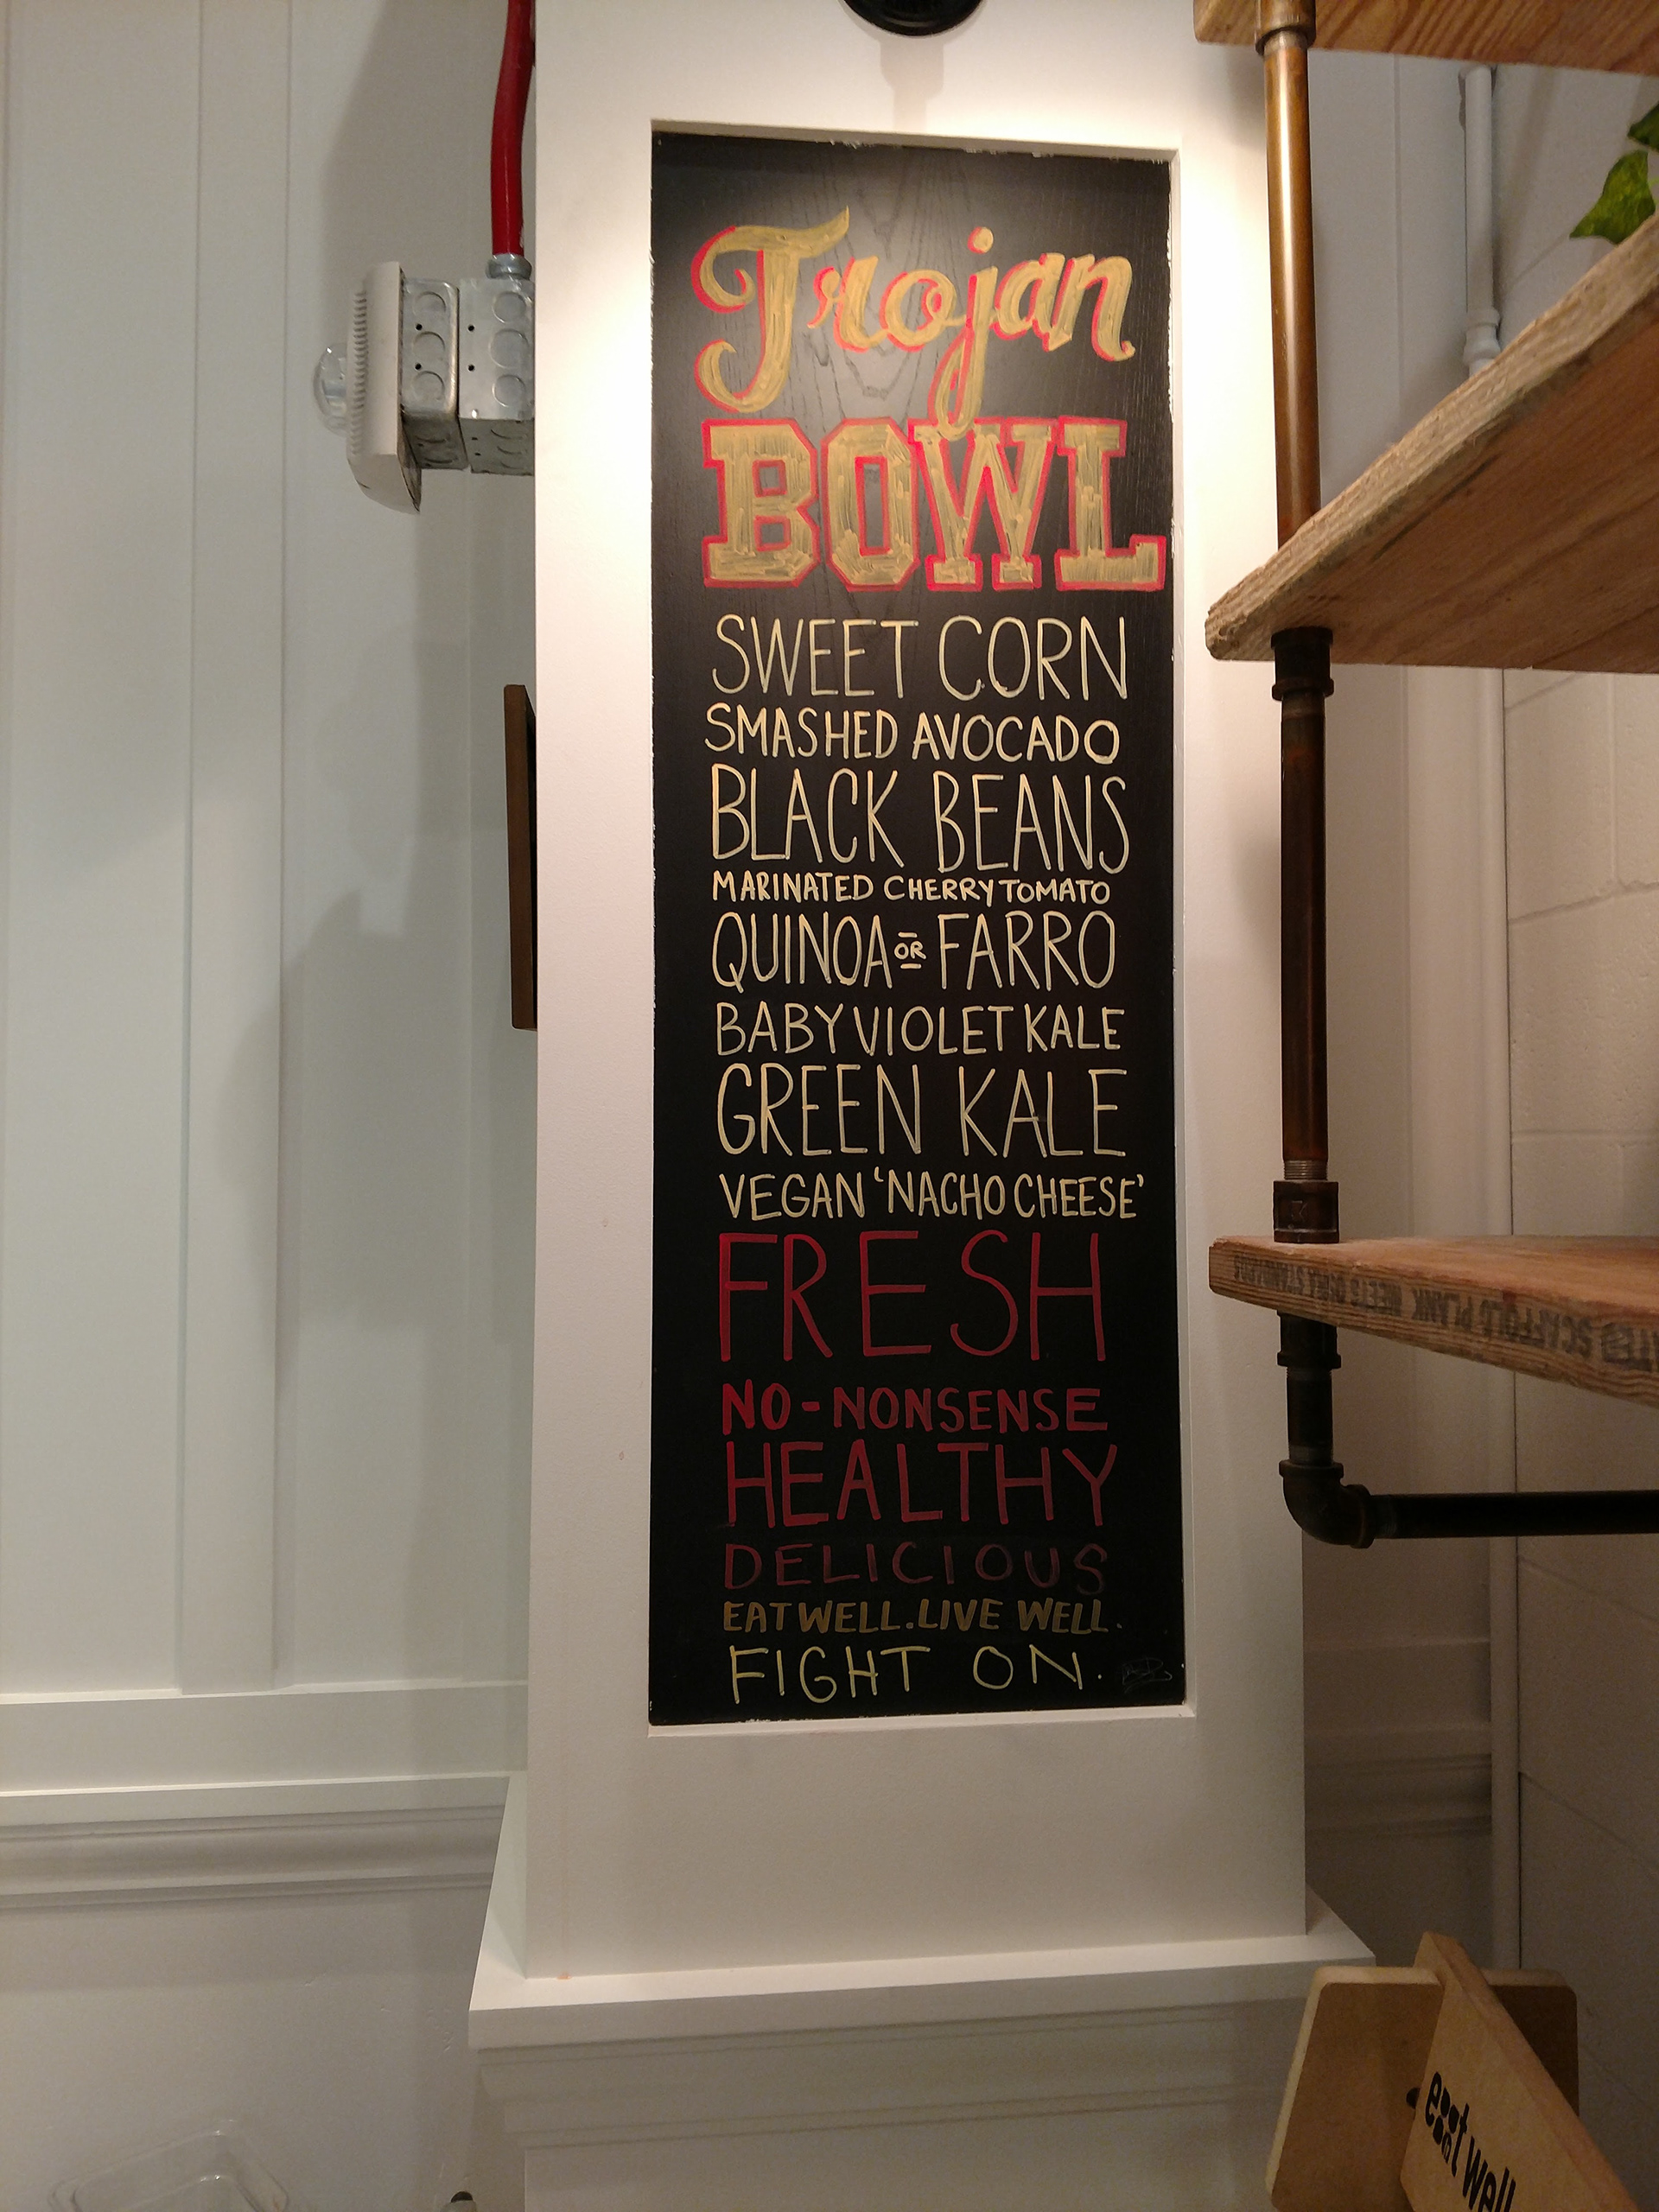 Trojan
BOWL
SWEET CORN
SMASHED AVOCADO
BLACK BEANS
MARINATED CHERRY TOMATO
QUINOA OR FARRO
BABY VIOLET KALE
GREEN KALE
VEGAN 'NACHO CHEESE'
FRESH
NO-NONSENSE
HEALTHY
DELICIOUS
EAT WELL. LIVE WELL.
FIGHT ON.
SCAFFOLD PLANK MEETS OSHA STANDARDS
eat well